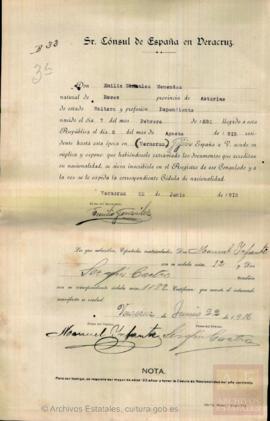 B 33
Sr. Cónsul de España en Veracruz.
Don Emilio González Menendez
natural de provincia de Asturias
de estado Soltero y profesión Dependiente
nacido el día 7 del mes Febrero de llegado a esta
República el día 8 del mes Agosto
dente hasta esta época en (Veracruz) España a V. acude en
súplica y expone: que habiéndosele extraviado los documentos que acrediten
su nacionalidad, se sirva inscribirle en el Registro de ese Consulado y a
la vez se le expida la correspondiente Cédula de nacionalidad.
Veracruz 22 de Junio de 1916
Emilio González
Los que subscriben Españoles matriculados: Don Manuel Infanta
con su cédula núm. 12 y Don
Serafín Castro también
con su correspondiente cédula núm. 1182 Certifican: que cuanto el interesado
manifiesta es verdad.
Veracruz Junio 22 de 1916
Manuel Infanta Serafín Castro
NOTA
Para ser testigo, se requiere ser mayor de edad: 23 años y tener la Cédula de Nacionalidad del año corriente.
© Archivos Estatales, cultura.gob.es